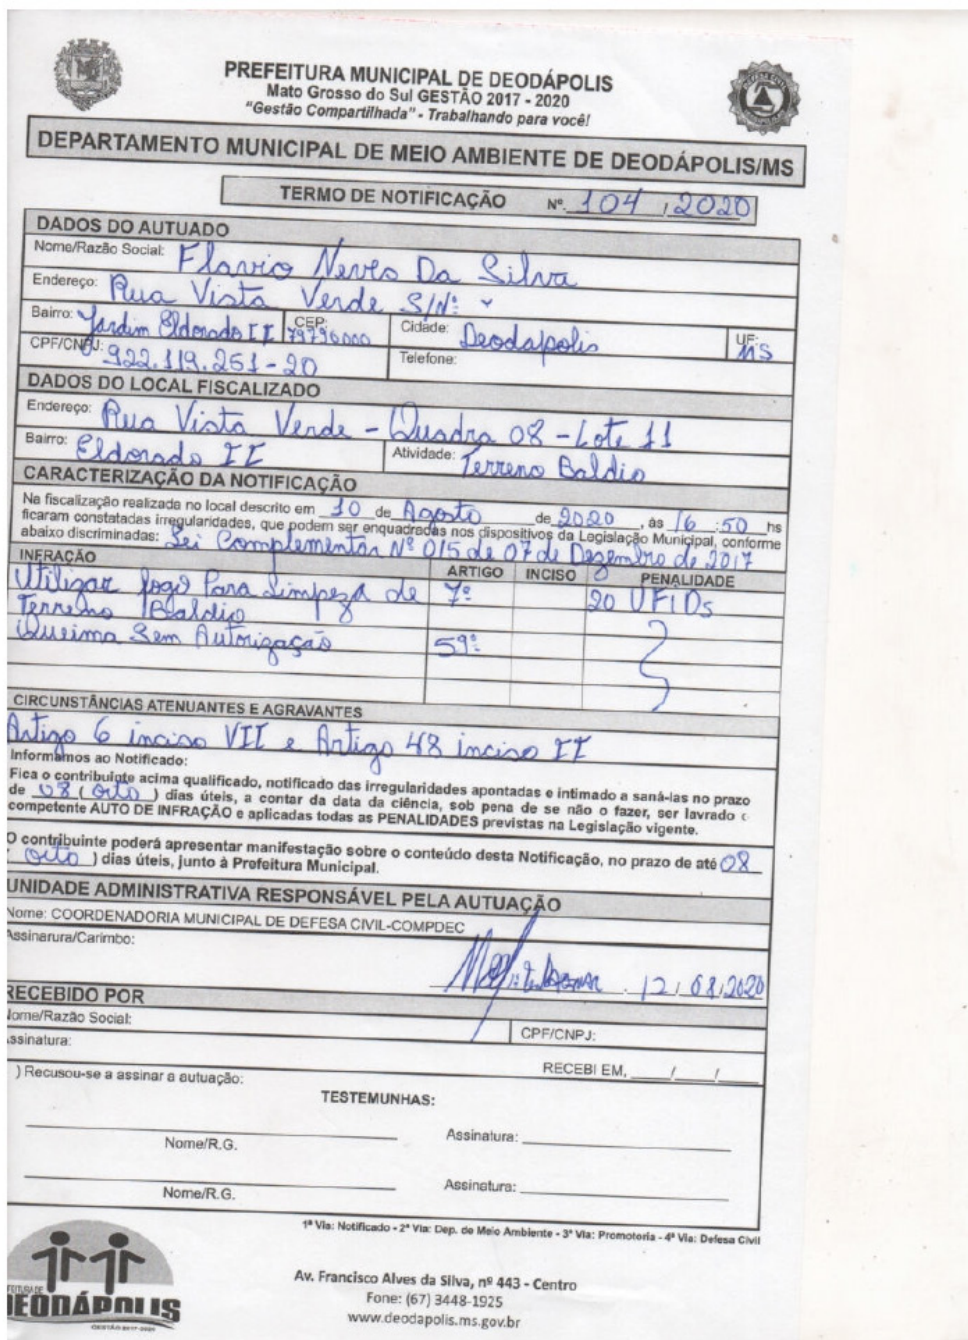 PREFEITURA MUNICIPAL DE DEODÁPOLIS
Mato Grosso do Sul GESTÃO 2017 - 2020
"Gestão Compartilhada" - Trabalhando para você!
DEPARTAMENTO MUNICIPAL DE MEIO AMBIENTE DE DEODÁPOLIS/MS
TERMO DE NOTIFICAÇÃO Nº. 104 / 2020
DADOS DO AUTUADO
Nome/Razão Social: Flavio Neves Da Silva
Endereço: Rua Vista Verde S/Nº
Bairro: Jardim Eldorado II CEP: 79790000 Cidade: Deodapolis UF: MS
CPF/CNPJ: 922.119.251-20 Telefone:
DADOS DO LOCAL FISCALIZADO
Endereço: Rua Vista Verde - Quadra 08 - Lote 11
Bairro: Eldorado II Atividade: Terreno Baldio
CARACTERIZAÇÃO DA NOTIFICAÇÃO
Na fiscalização realizada no local descrito em 10 de Agosto de 2020, às 16:50 hs
ficaram constatadas irregularidades, que podem ser enquadradas nos dispositivos da Legislação Municipal, conforme
abaixo discriminadas: Lei Complementar Nº 015 de 07 de Dezembro de 2017
INFRAÇÃO ARTIGO INCISO PENALIDADE
Utilizar fogo Para Limpeza de 7º 20 UFIDs
Terreno Baldio
Queima Sem Autorização 59º
CIRCUNSTÂNCIAS ATENUANTES E AGRAVANTES
Artigo 6 inciso VII e Artigo 48 inciso II
Informamos ao Notificado:
Fica o contribuinte acima qualificado, notificado das irregularidades apontadas e intimado a saná-las no prazo
de 08 ( oito ) dias úteis, a contar da data da ciência, sob pena de se não o fazer, ser lavrado o
competente AUTO DE INFRAÇÃO e aplicadas todas as PENALIDADES previstas na Legislação vigente.
O contribuinte poderá apresentar manifestação sobre o conteúdo desta Notificação, no prazo de até 08
( oito ) dias úteis, junto à Prefeitura Municipal.
UNIDADE ADMINISTRATIVA RESPONSÁVEL PELA AUTUAÇÃO
Nome: COORDENADORIA MUNICIPAL DE DEFESA CIVIL-COMPDEC
Assinarura/Carimbo:
12/08/2020
RECEBIDO POR
Nome/Razão Social: CPF/CNPJ:
Assinatura: RECEBI EM, ___/___/___
) Recusou-se a assinar a autuação:
TESTEMUNHAS:
Assinatura:
Nome/R.G.
Assinatura:
Nome/R.G.
1ª Via: Notificado - 2ª Via: Dep. de Meio Ambiente - 3ª Via: Promotoria - 4ª Via: Defesa Civil
DEODÁPOLIS
GESTÃO 2017-2020
Av. Francisco Alves da Silva, nº 443 - Centro
Fone: (67) 3448-1925
www.deodapolis.ms.gov.br